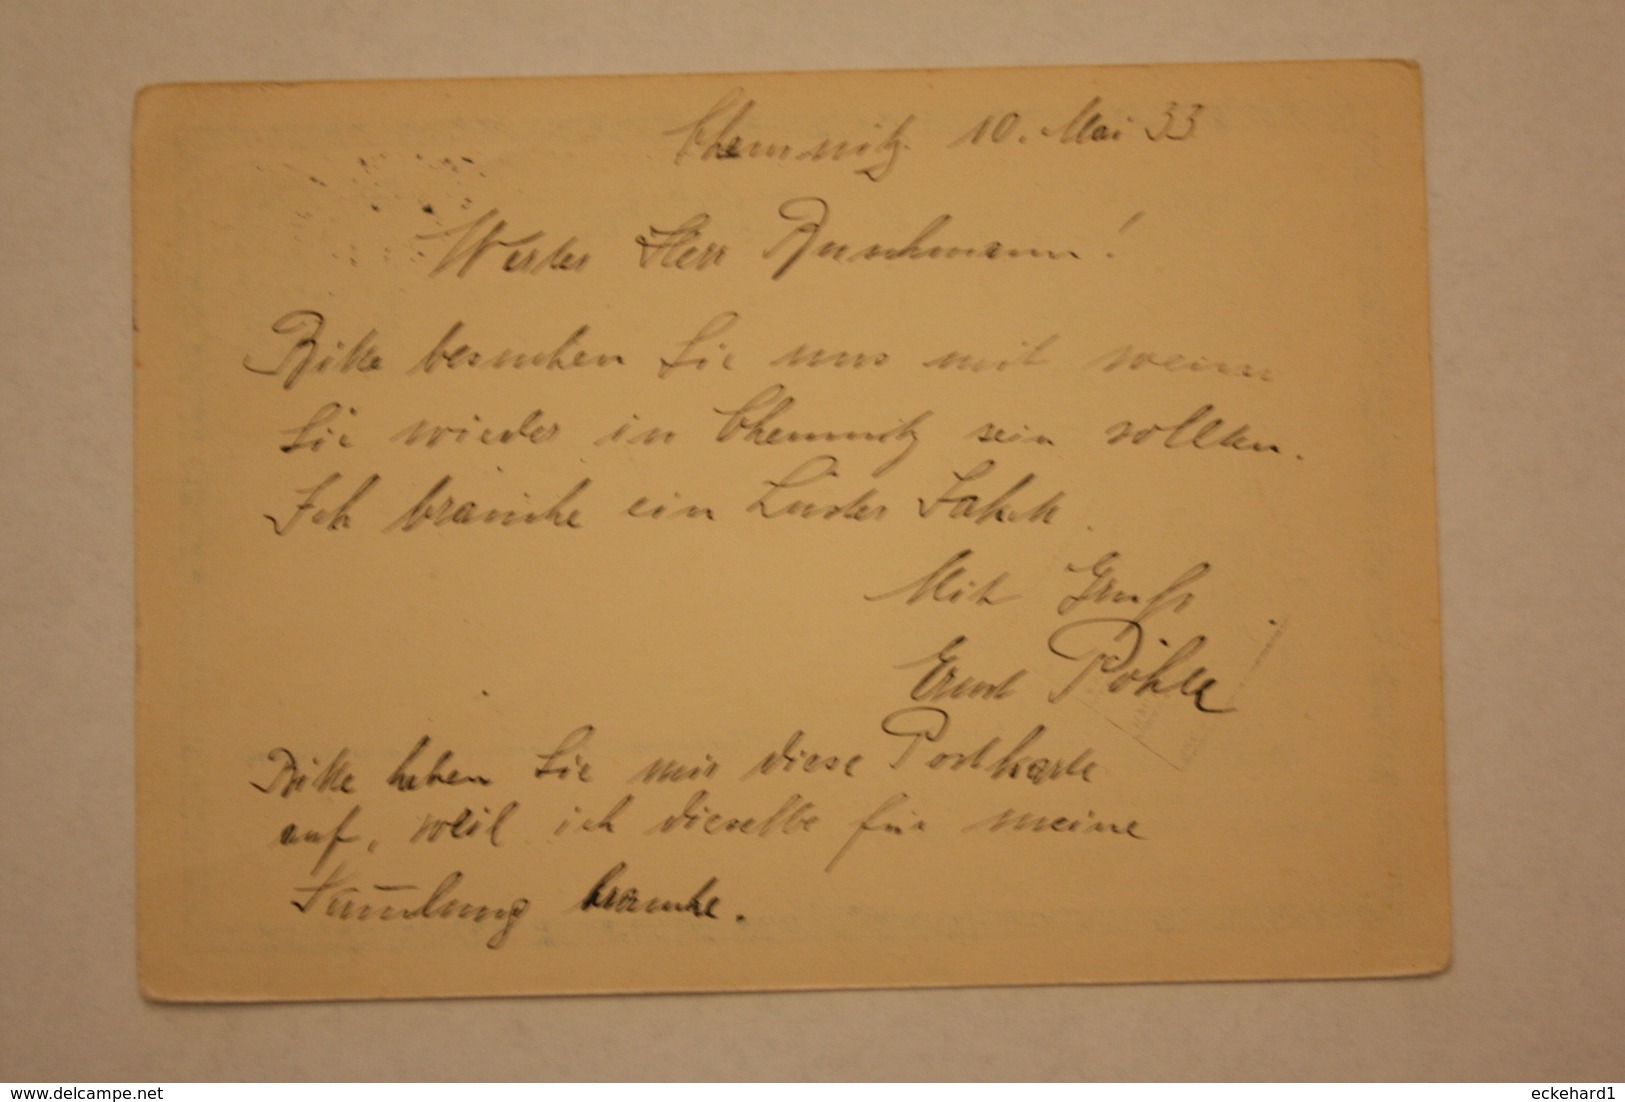 Chemnitz 10. Mai 33
Werter Herr Buschmann!
Bitte besuchen Sie uns mit wenn
Sie wieder in Chemnitz sein sollten.
Ich brauche ein Lüster Jakett.
Mit Gruß
Ernst Pöhle
Bitte heben Sie mir diese Postkarte
auf, weil ich dieselbe für meine
Sam̄lung brauche.
www.delcampe.net
eckehard1